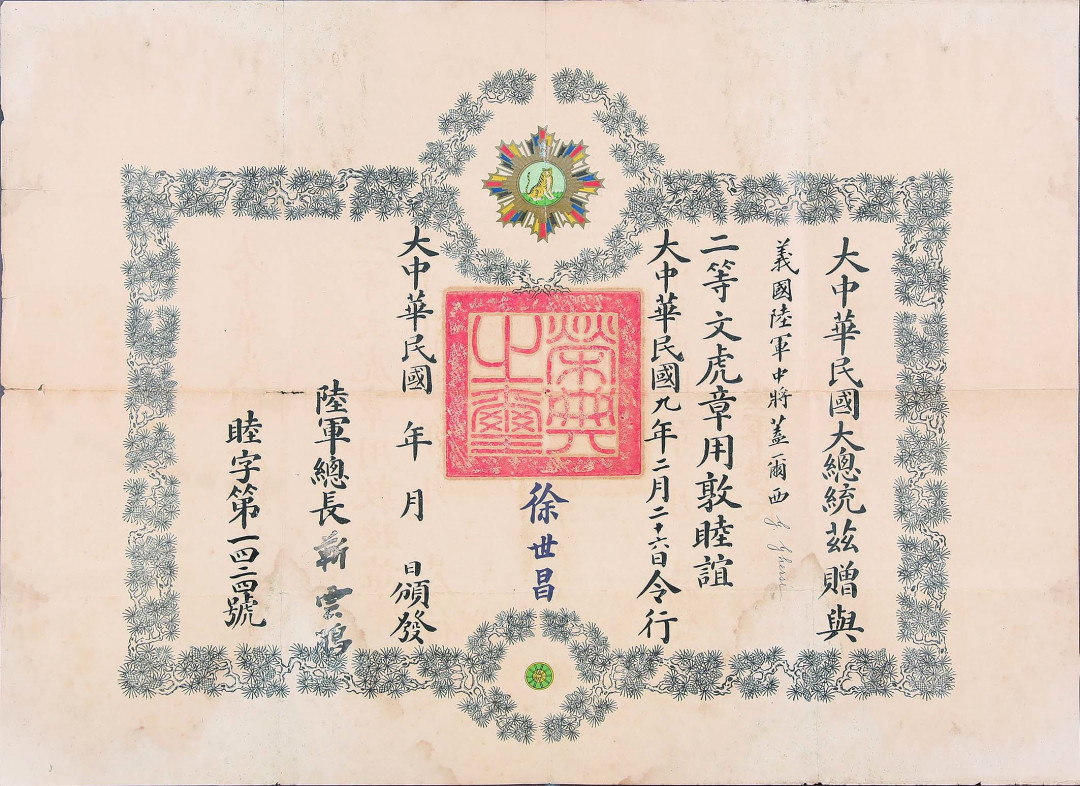 大中華民國大總統茲贈與
義國陸軍中將蓋爾西 G Ghersi
二等文虎章用敦睦誼
大中華民國九年二月二十六日令行
榮典之璽
徐世昌
大中華民國 年 月 日頒發
陸軍總長靳雲鵬
睦字第一四二四號